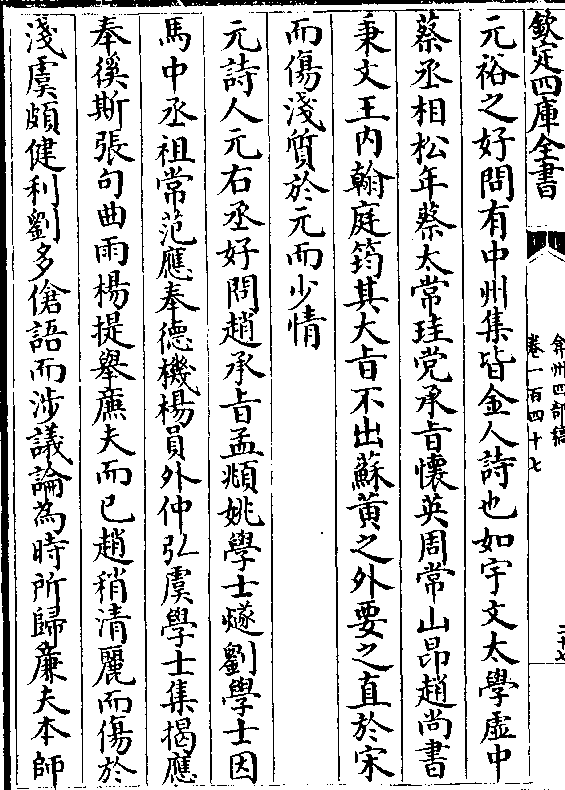 欽定四庫全書
弇州四部稿
卷一百四十七
元裕之好問有中州集皆金人詩也如宇文太學虛中
蔡丞相松年蔡太常珪党承旨懷英周常山昂趙尚書
秉文王内翰庭筠其大旨不出蘇黄之外要之直於宋
而傷淺質於元而少情
元詩人元右丞好問趙承旨孟頫姚學士燧劉學士因
馬中丞祖常范應奉德機楊員外仲弘虞學士集揭應
奉徯斯張句曲雨楊提舉廉夫而已趙稍清麗而傷於
淺虞頗健利劉多傖語而涉議論為時所歸廉夫本師